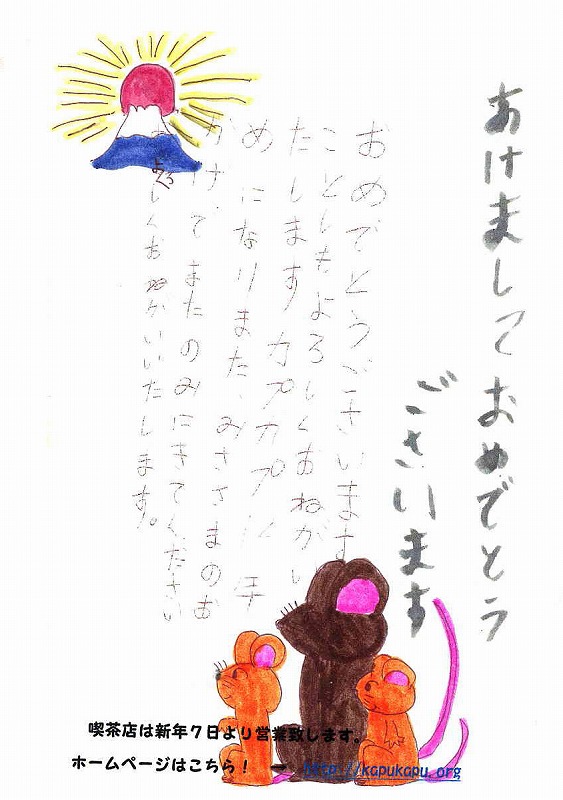 あけましておめでとう
ごさいます
おめでとうごさいます
ことしもよろしくおねがい
たします カプカプ12年
めになりまた、みささまのお
かげでまたのみにきてください
よろしくおねがいいたします。
喫茶店は新年7日より営業致します。
ホームページはこちら！ → http://kapukapu.org